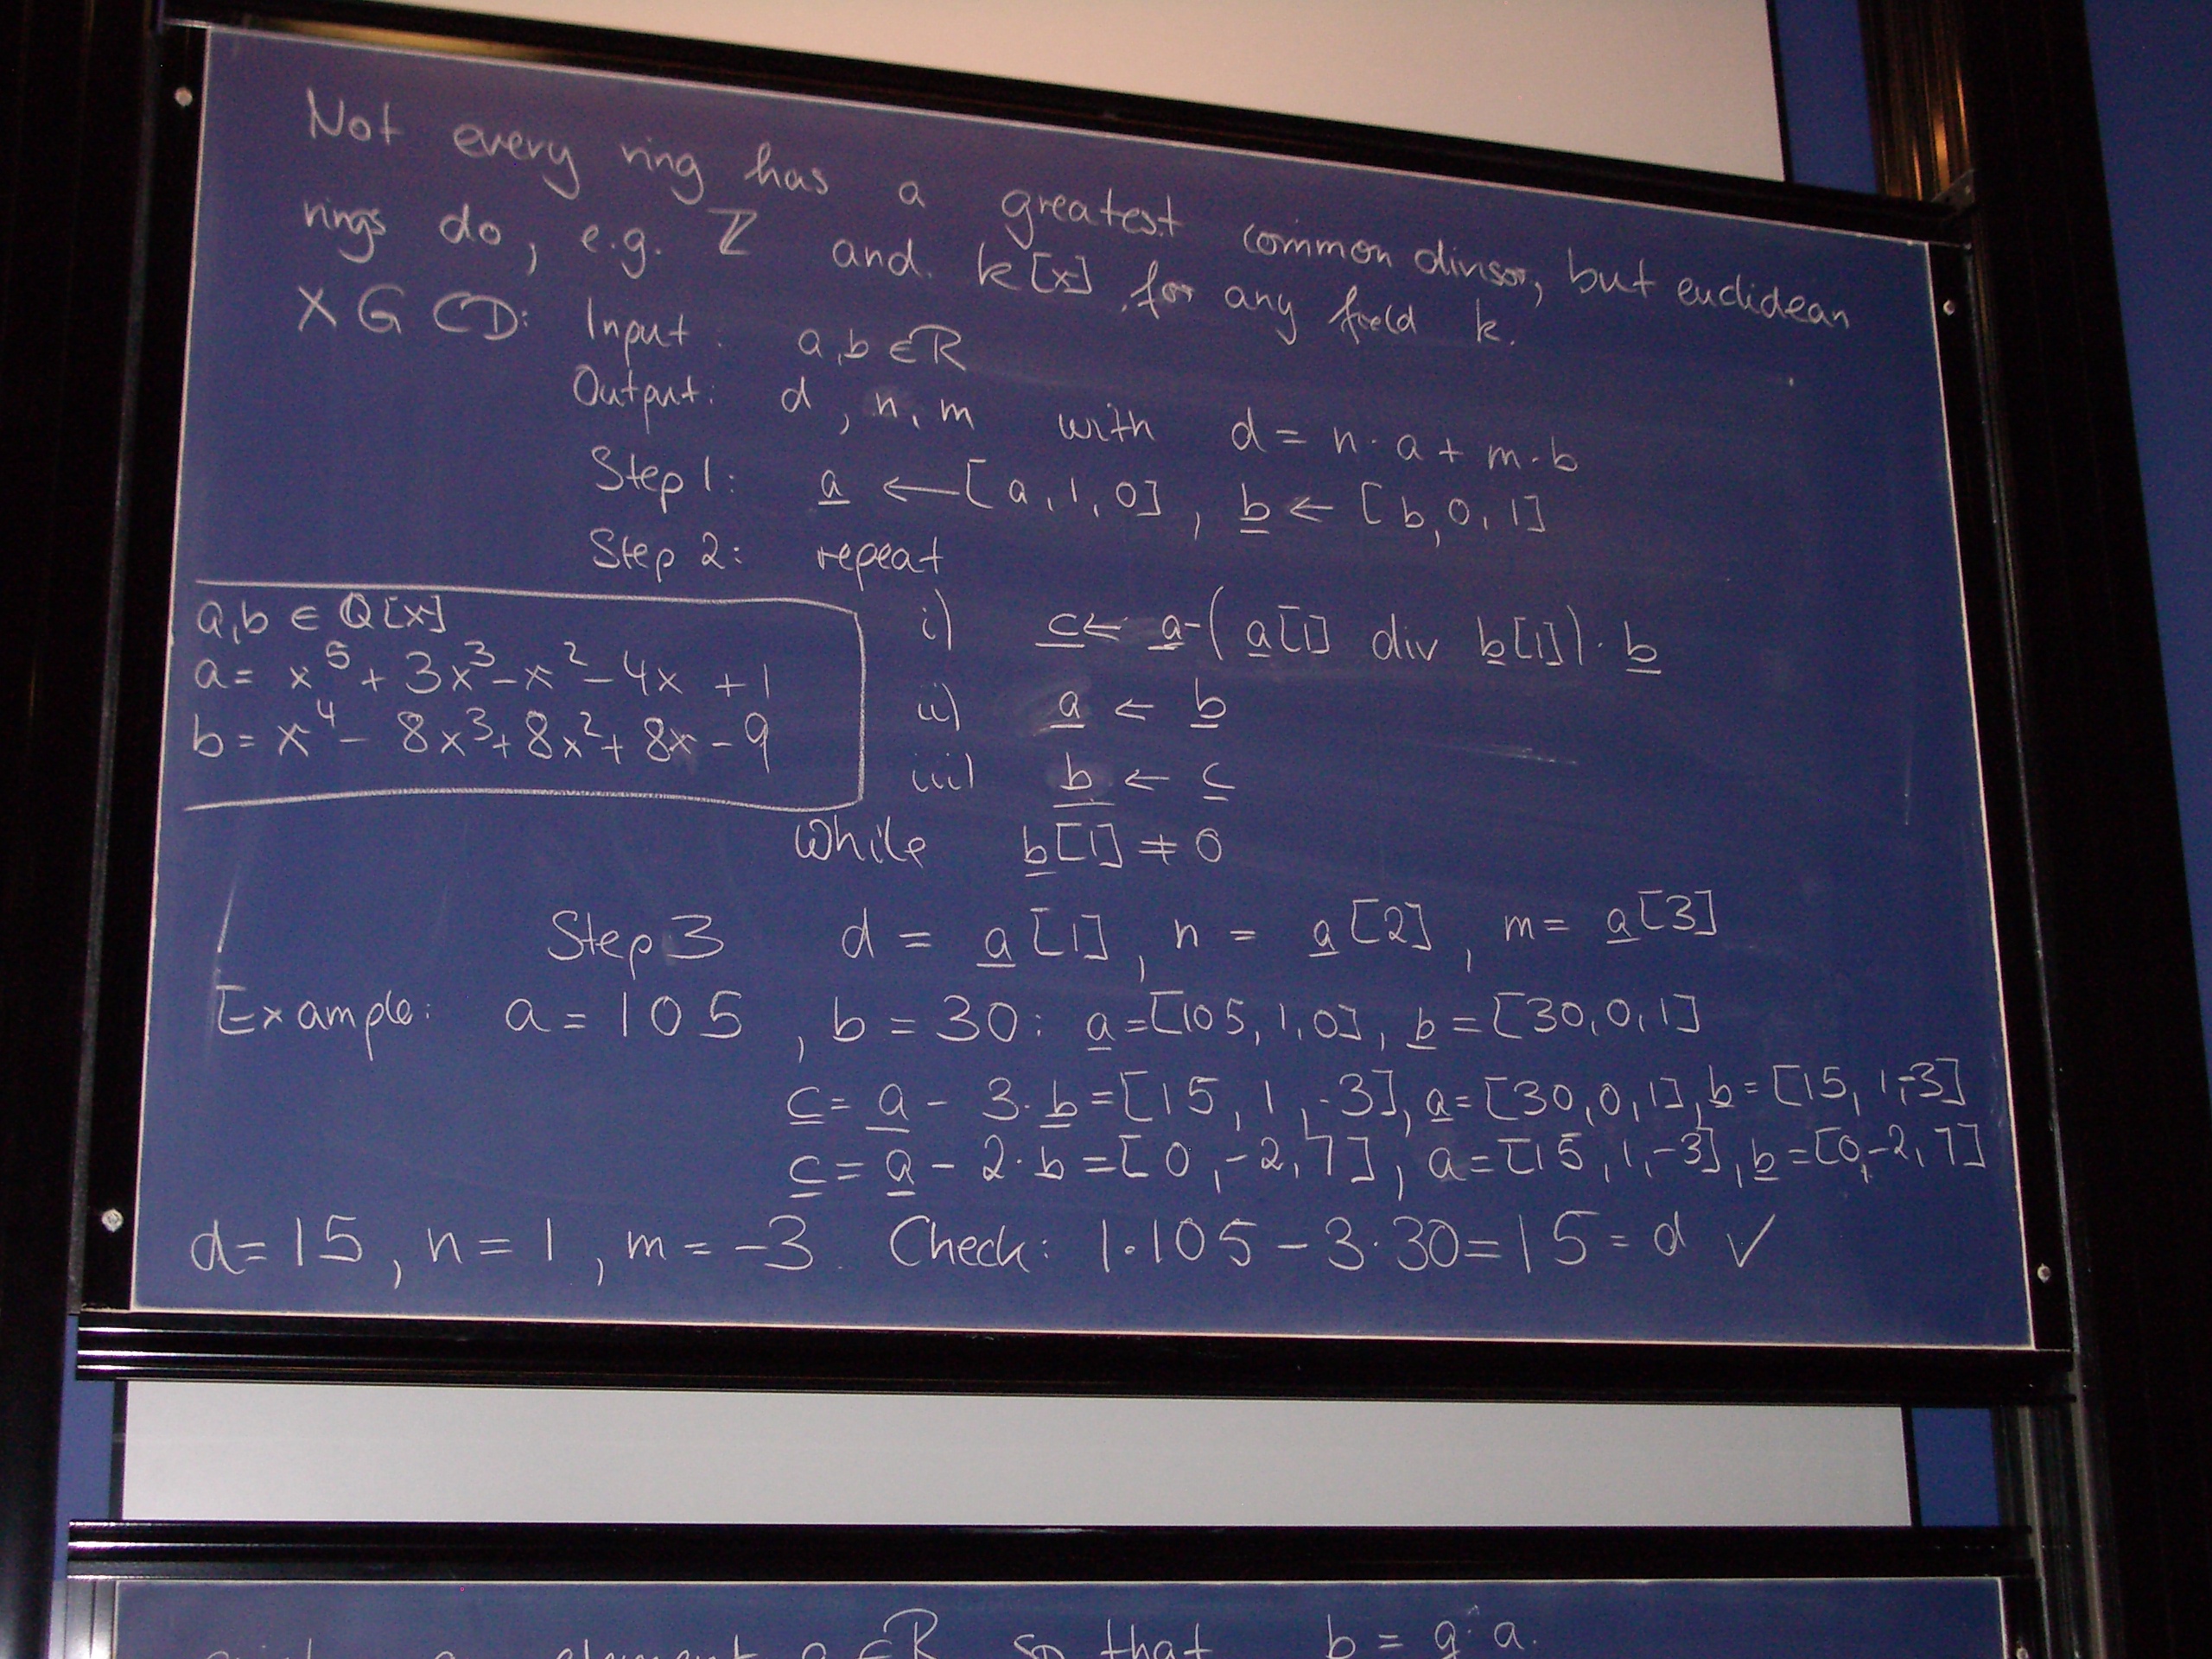 Not every ring has a greatest common divisor, but euclidean
rings do, e.g. ℤ and k[x] for any field k.
XGCD: Input: a,b ∈ R
Output: d, n, m with d = n·a + m·b
Step 1: a ← [a,1,0], b ← [b,0,1]
Step 2: repeat
i) c ← a-(a[1] div b[1])·b
ii) a ← b
iii) b ← c
While b[1] ≠ 0
a,b ∈ ℚ[x]
a = x⁵ + 3x³ - x² - 4x + 1
b = x⁴ - 8x³ + 8x² + 8x - 9
Step 3 d = a[1], n = a[2], m = a[3]
Example: a = 105, b = 30: a = [105,1,0], b = [30,0,1]
c = a - 3·b = [15,1,-3], a = [30,0,1], b = [15,1,-3]
c = a - 2·b = [0,-2,7], a = [15,1,-3], b = [0,-2,7]
d = 15, n = 1, m = -3. Check: 1·105 - 3·30 = 15 = d ✓
element ∈ R so that b = q·a.